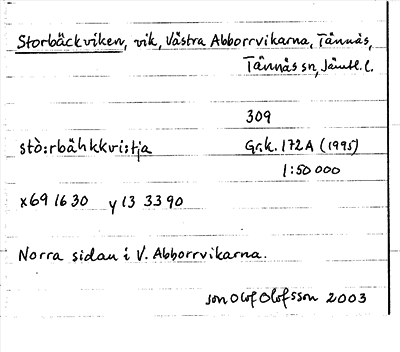 Storbäckviken, vik, Västra Abborrvikarna, Tännäs,
Tännäs sn, Jämtl. l.
309
stò:rbähkkvi:tja Gr.k. 172A (1995)
1:50 000
x69 16 30 y 13 33 90
Norra sidan i V. Abborrvikarna.
Jon Olof Olofsson 2003